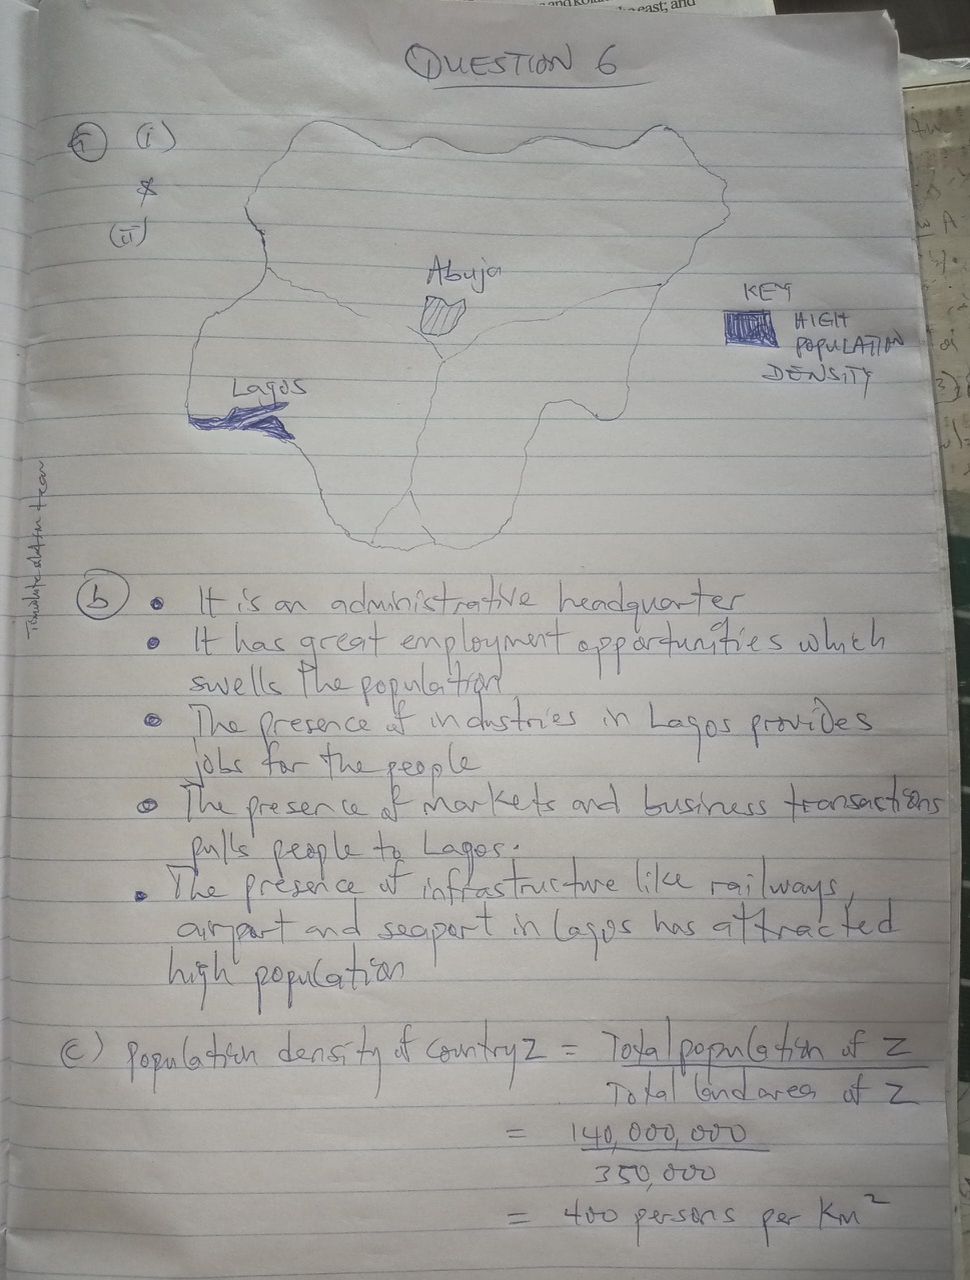 east; and
QUESTION 6
(i)
&
(ii)
Abuja
KEY
HIGH
POPULATION
DENSITY
Lagos
b • It is an administrative headquarter
• It has great employment opportunities which
swells the population
• The presence of industries in Lagos provides
jobs for the people
• The presence of markets and business transactions
pulls people to Lagos.
• The presence of infrastructure like railways,
airport and seaport in Lagos has attracted
high population
c) Population density of country Z = Total population of Z
Total land area of Z
= 140,000,000
350,000
= 400 persons per Km²